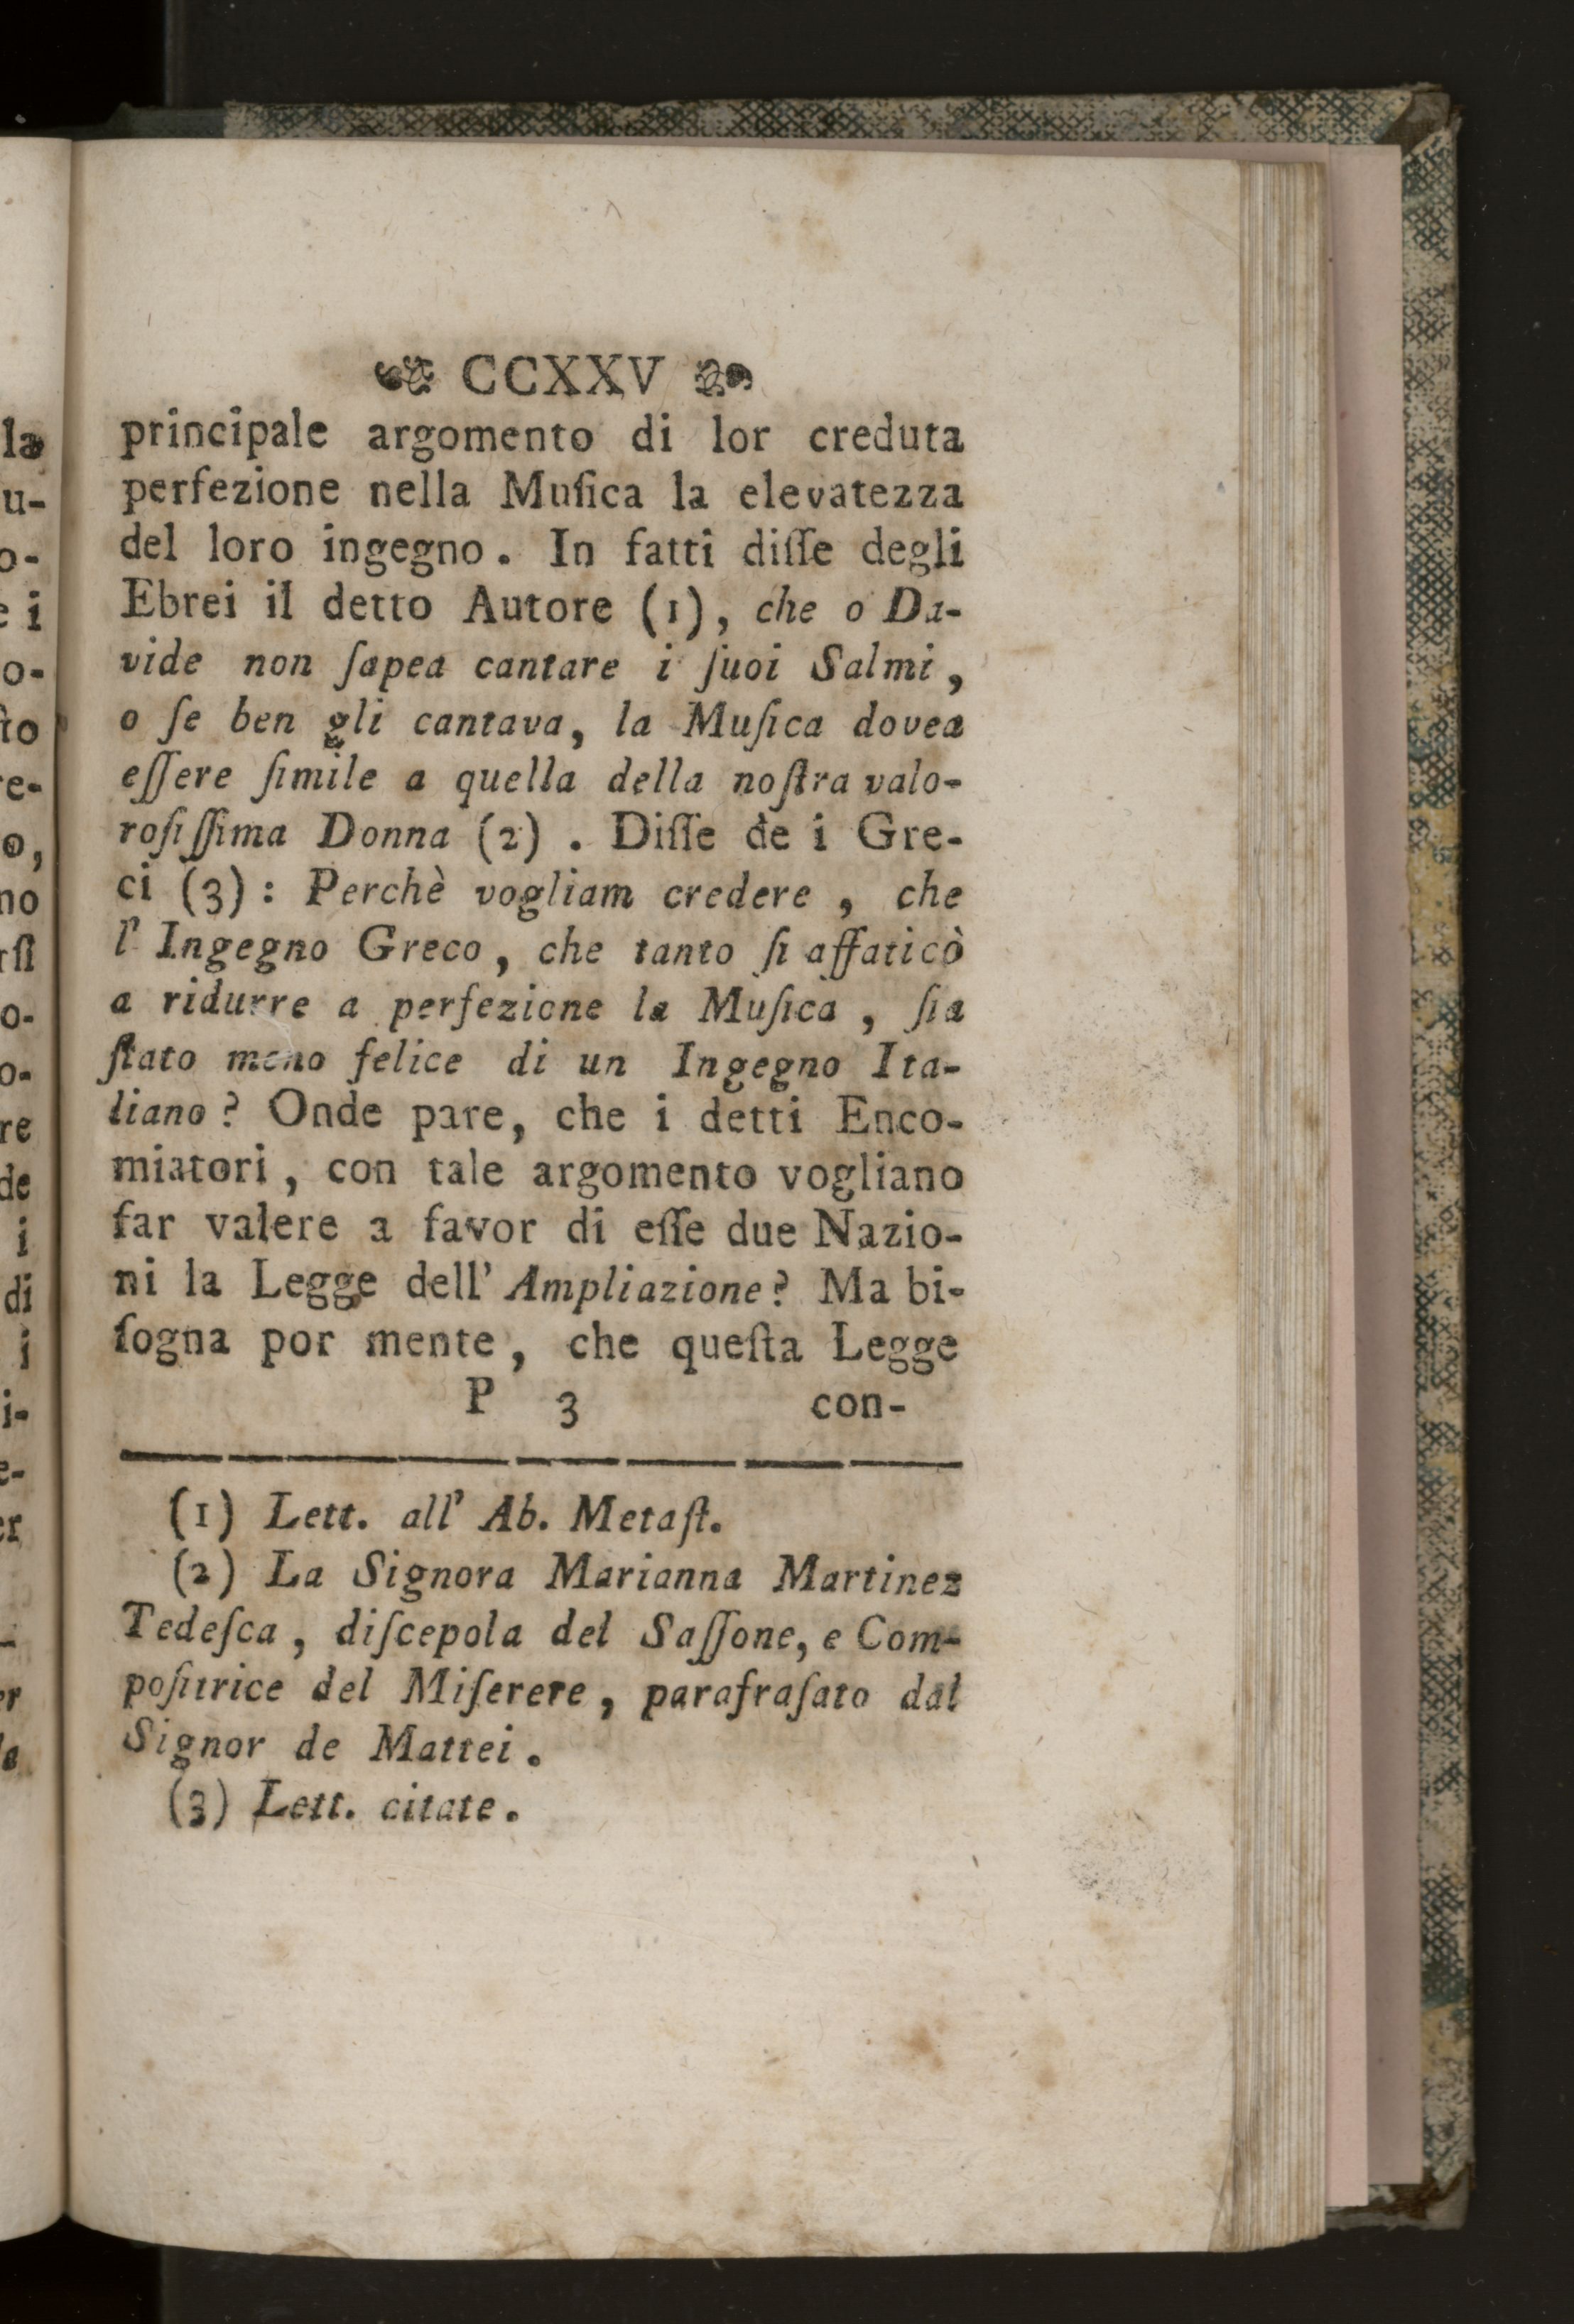 CCXXV
principale argomento di lor creduta
perfezione nella Muſica la elevatezza
del loro ingegno. In fatti diſſe degli
Ebrei il detto Autore (1), che o Da-
vide non ſapea cantare i ſuoi Salmi,
o ſe ben gli cantava, la Muſica dovea
eſſere ſimile a quella della noſtra valo-
roſiſſima Donna (2). Diſſe de i Gre-
ci (3): Perchè vogliam credere, che
l' Ingegno Greco, che tanto ſi affaticò
a ridurre a perfezione la Muſica, ſia
ſtato meno felice di un Ingegno Ita-
liano? Onde pare, che i detti Enco-
miatori, con tale argomento vogliano
far valere a favor di eſſe due Nazio-
ni la Legge dell' Ampliazione? Ma bi-
ſogna por mente, che queſta Legge
P 3 con-
(1) Lett. all' Ab. Metaſt.
(2) La Signora Marianna Martinez
Tedeſca, diſcepola del Saſſone, e Com-
poſitrice del Miſerere, parafraſato dal
Signor de Mattei.
(3) Lett. citate.